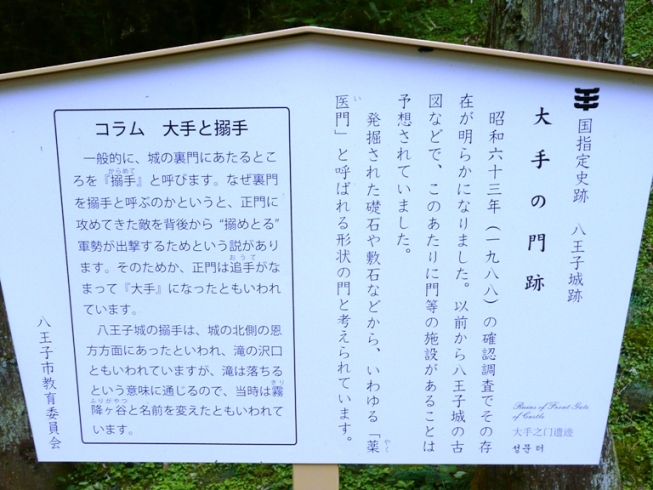 国指定史跡 八王子城跡
大手の門跡
昭和六十三年(一九八八)の確認調査でその存
在が明らかになりました。以前から八王子城の古
図などで、このあたりに門等の施設があることは
予想されていました。
発掘された礎石や敷石などから、いわゆる「薬
やく
医門」と呼ばれる形状の門と考えられています。
い
コラム 大手と搦手
一般的に、城の裏門にあたるとこ
ろを『搦手』と呼びます。なぜ裏門
からめて
を搦手と呼ぶのかというと、正門に
攻めてきた敵を背後から“搦めとる”
軍勢が出撃するためという説があり
ます。そのためか、正門は追手がな
おうて
まって『大手』になったともいわれ
ています。
八王子城の搦手は、城の北側の恩
方方面にあったといわれ、滝の沢口
ともいわれていますが、滝は落ちる
という意味に通じるので、当時は霧
きり
降ヶ谷と名前を変えたともいわれて
ふりがやつ
います。
八王子市教育委員会
Ruins of Front Gate
of Castle
大手之门遗迹
성문 터